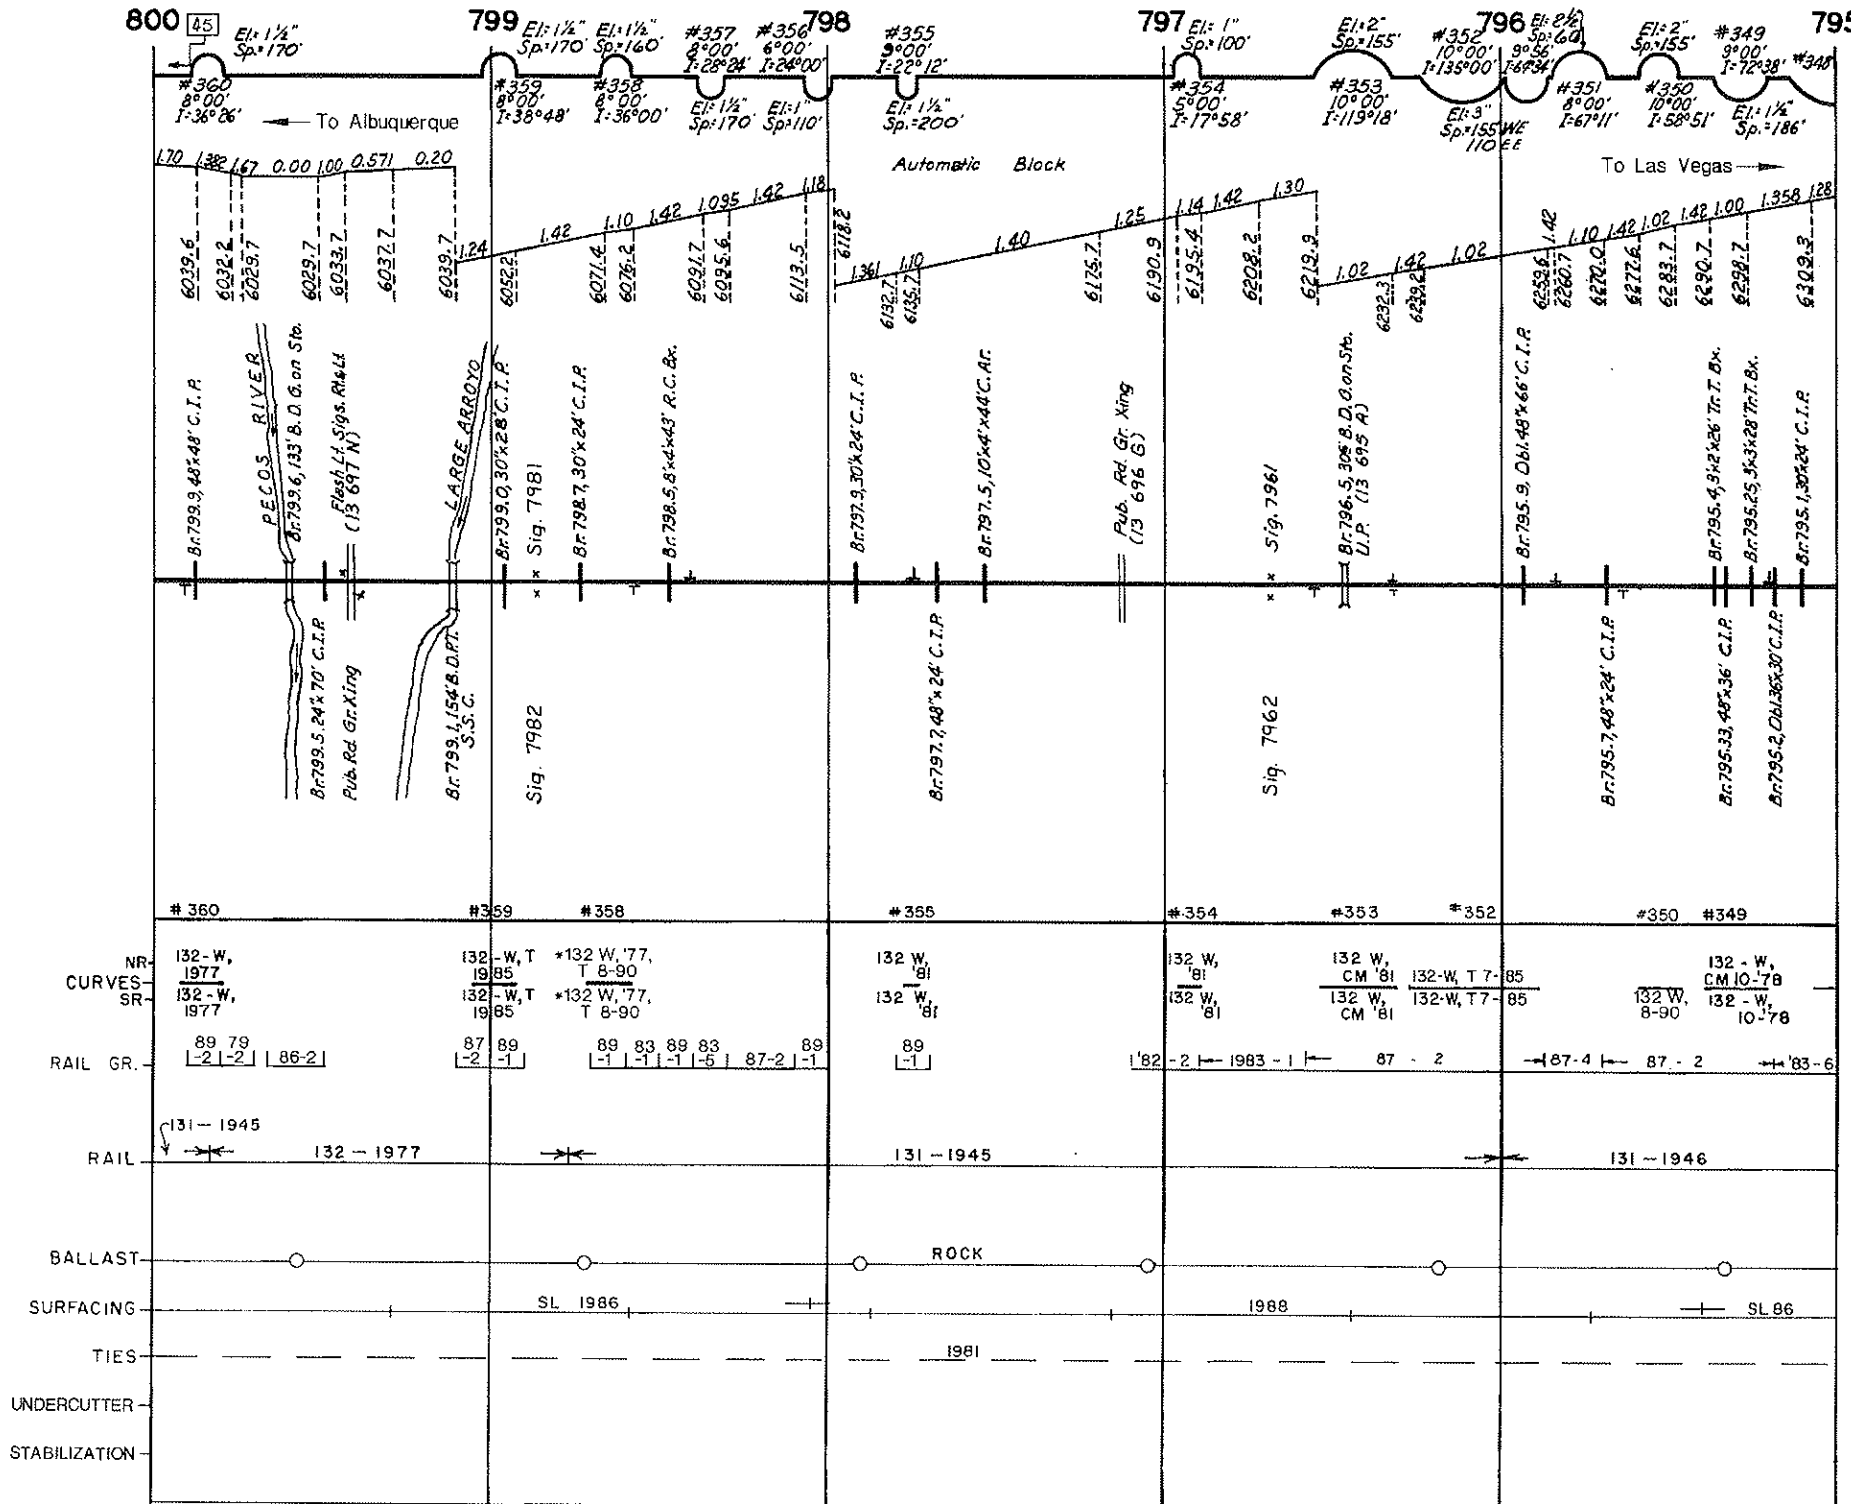 800 799 798 797 796 795
45
El.= 1½"
Sp.=170'
#360
8°00'
I=36°26'
El.= 1½"
Sp.=170'
#359
8°00'
I=38°48'
El.= 1½"
Sp.=160'
#358
8°00'
I=36°00'
#357
8°00'
I=28°24'
El.= 1½"
Sp.=170'
#356
6°00'
I=24°00'
El.= 1"
Sp.=110'
#355
9°00'
I=22°12'
El.= 1½"
Sp.=200'
El.= 1"
Sp.=100'
#354
5°00'
I=17°58'
El.=2"
Sp.=155'
#353
10°00'
I=119°18'
#352
10°00'
I=135°00'
El.=3"
Sp.=155 WE
110 EE
El.=2½
Sp.=60'
9°56'
I=67°34'
#351
8°00'
I=67°11'
El.=2"
Sp.=155'
#350
10°00'
I=58°51'
#349
9°00'
I=72°38'
El.=1½"
Sp.=186'
#348
To Albuquerque
Automatic Block
To Las Vegas
1.70 1.382 1.67 0.00 1.00 0.571 0.20
1.24 1.42 1.10 1.42 1.095 1.42 1.18
1.361 1.10 1.40 1.25 1.14 1.42 1.30
1.02 1.42 1.02 1.42 1.10 1.42 1.02 1.42 1.00 1.358 1.28
6039.6 6032.2 6029.7 6029.7 6033.7 6037.7 6039.7 6052.2 6071.4 6076.2 6091.7 6095.6 6113.5 6118.2 6132.7 6135.7 6175.7 6190.9 6195.4 6208.2 6219.9 6232.3 6239.2 6259.6 6260.7 6270.0 6277.6 6283.7 6290.7 6298.7 6309.3
Br.799.9,48"x48' C.I.P.
PECOS RIVER
Br.799.6,133' B.D.G. on Sto.
Flash Lt. Sigs. Rt.&Lt
(13 697 N)
LARGE ARROYO
Br.799.0,30"x28' C.I.P.
Sig. 7981
Br.798.7,30"x24' C.I.P.
Br.798.5,8'x4'x43' R.C. Bx.
Br.797.9,30"x24' C.I.P.
Br.797.5,10'x4'x44' C. Ar.
Pub. Rd. Gr. Xing
(13 696 G)
Sig. 7961
Br.796.5,306' B.D.G. on Sto.
U.P. (13 695 A)
Br.795.9, Dbl.48"x66' C.I.P.
Br.795.4,3'x2'x26' Tr.T. Bx.
Br.795.25,3'x3'x28' Tr.T. Bx.
Br.795.1,30"x24' C.I.P.
Br.799.5,24"x70' C.I.P.
Pub. Rd. Gr. Xing
Br.799.1,154' B.D.P.T.
S.S.C.
Sig. 7982
Br.797.7,48"x24' C.I.P.
Sig. 7962
Br.795.7,48"x24' C.I.P.
Br.795.33,48"x36' C.I.P.
Br.795.2,Dbl.36"x30' C.I.P.
#360 #359 #358 #355 #354 #353 #352 #350 #349
NR
CURVES
SR
132-W,
1977
132-W,
1977
132-W, T
1985
132-W, T
1985
*132 W, '77,
T 8-90
*132 W, '77,
T 8-90
132 W,
'81
132 W,
'81
132 W,
'81
132 W,
'81
132 W,
CM '81
132 W,
CM '81
132-W, T 7-85
132-W, T 7-85
132 W,
8-90
132-W,
CM 10-78
132-W,
10-78
RAIL GR. 89-2 79-2 86-2 87-2 89-1 89-1 83-1 89-1 83-5 87-2 89-1 89-1 '82-2 1983-1 87-2 87-4 87-2 '83-6
RAIL 131-1945 132-1977 131-1945 131-1946
BALLAST ROCK
SURFACING SL 1986 1988 SL 86
TIES 1981
UNDERCUTTER
STABILIZATION